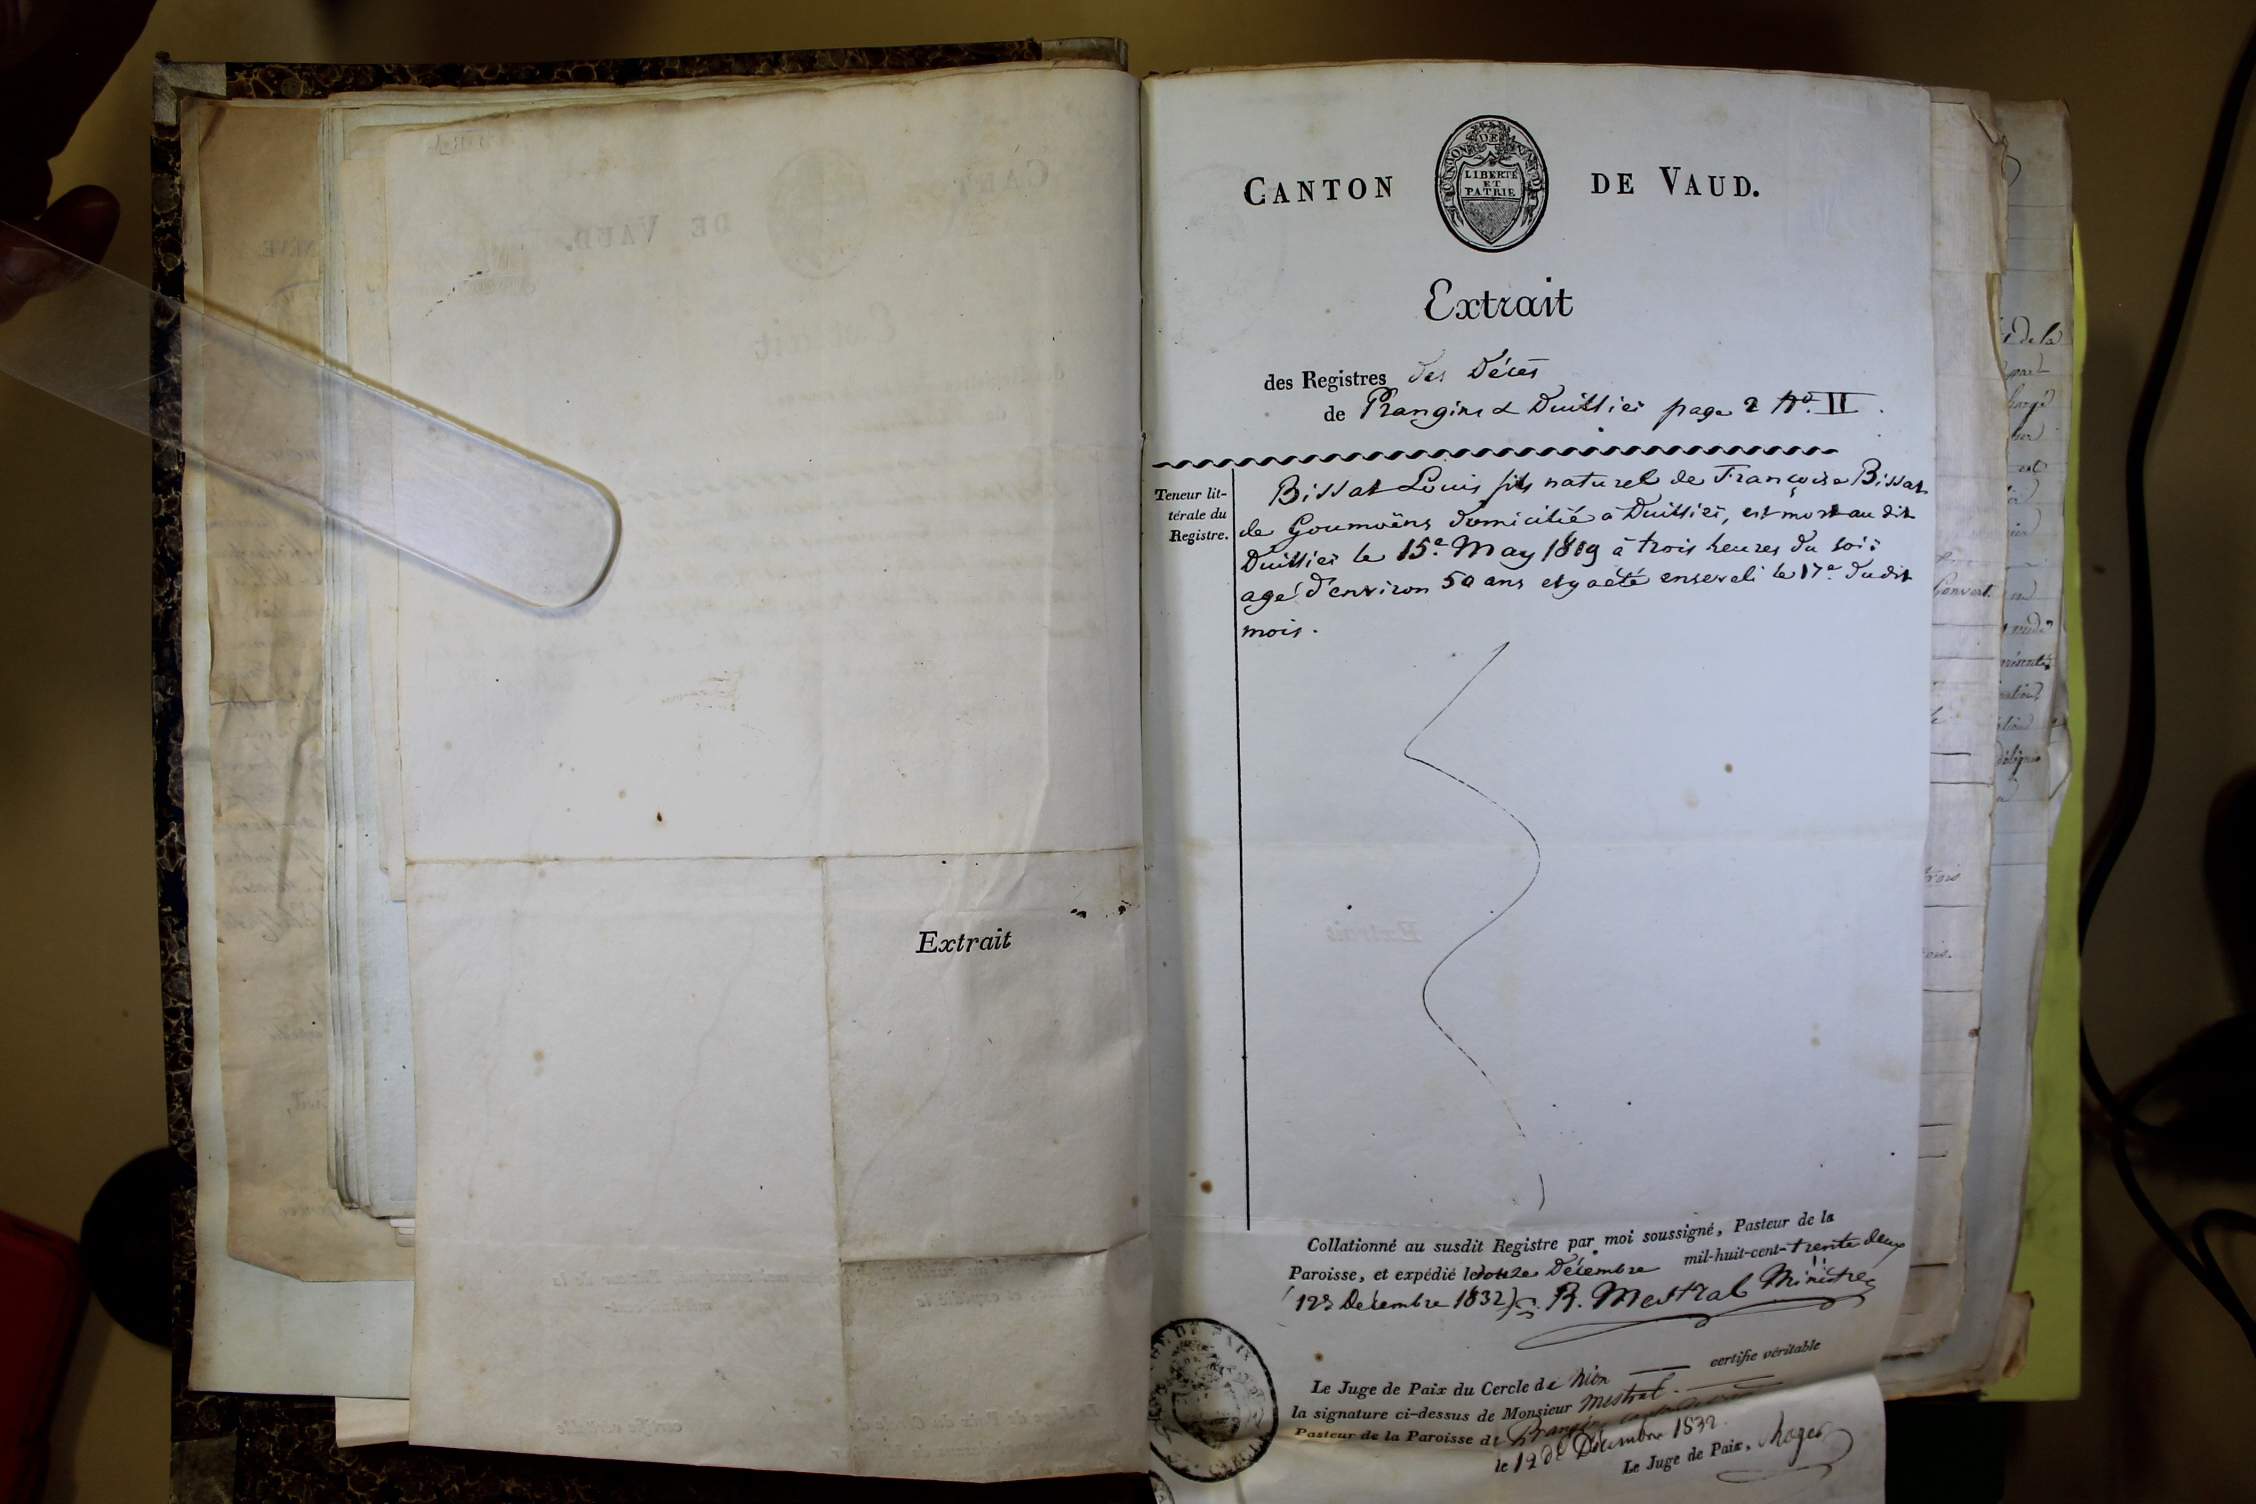 Extrait
CANTON DE VAUD.
CANTON DE VAUD
LIBERTÉ
ET
PATRIE
Extrait
des Registres des Décès
de Prangins & Duillier page 2 No. II.
Teneur lit-
térale du
Registre.
Bissat Louis fils naturel de Françoise Bissat
de Goumoëns domicilié à Duillier, est mort au dit
Duillier le 15e. May 1809 à trois heures du soir
agé d'environ 50 ans et y a été enseveli le 17e. dudit
mois.
Collationné au susdit Registre par moi soussigné, Pasteur de la
Paroisse, et expédié le douze Décembre mil-huit-cent-trente deux
(12e Décembre 1832) R. Mestral Ministre
Le Juge de Paix du Cercle de Nion certifie véritable
la signature ci-dessus de Monsieur Mestral.
Pasteur de la Paroisse de Prangins
le 12 de Décembre 1832.
Le Juge de Paix,